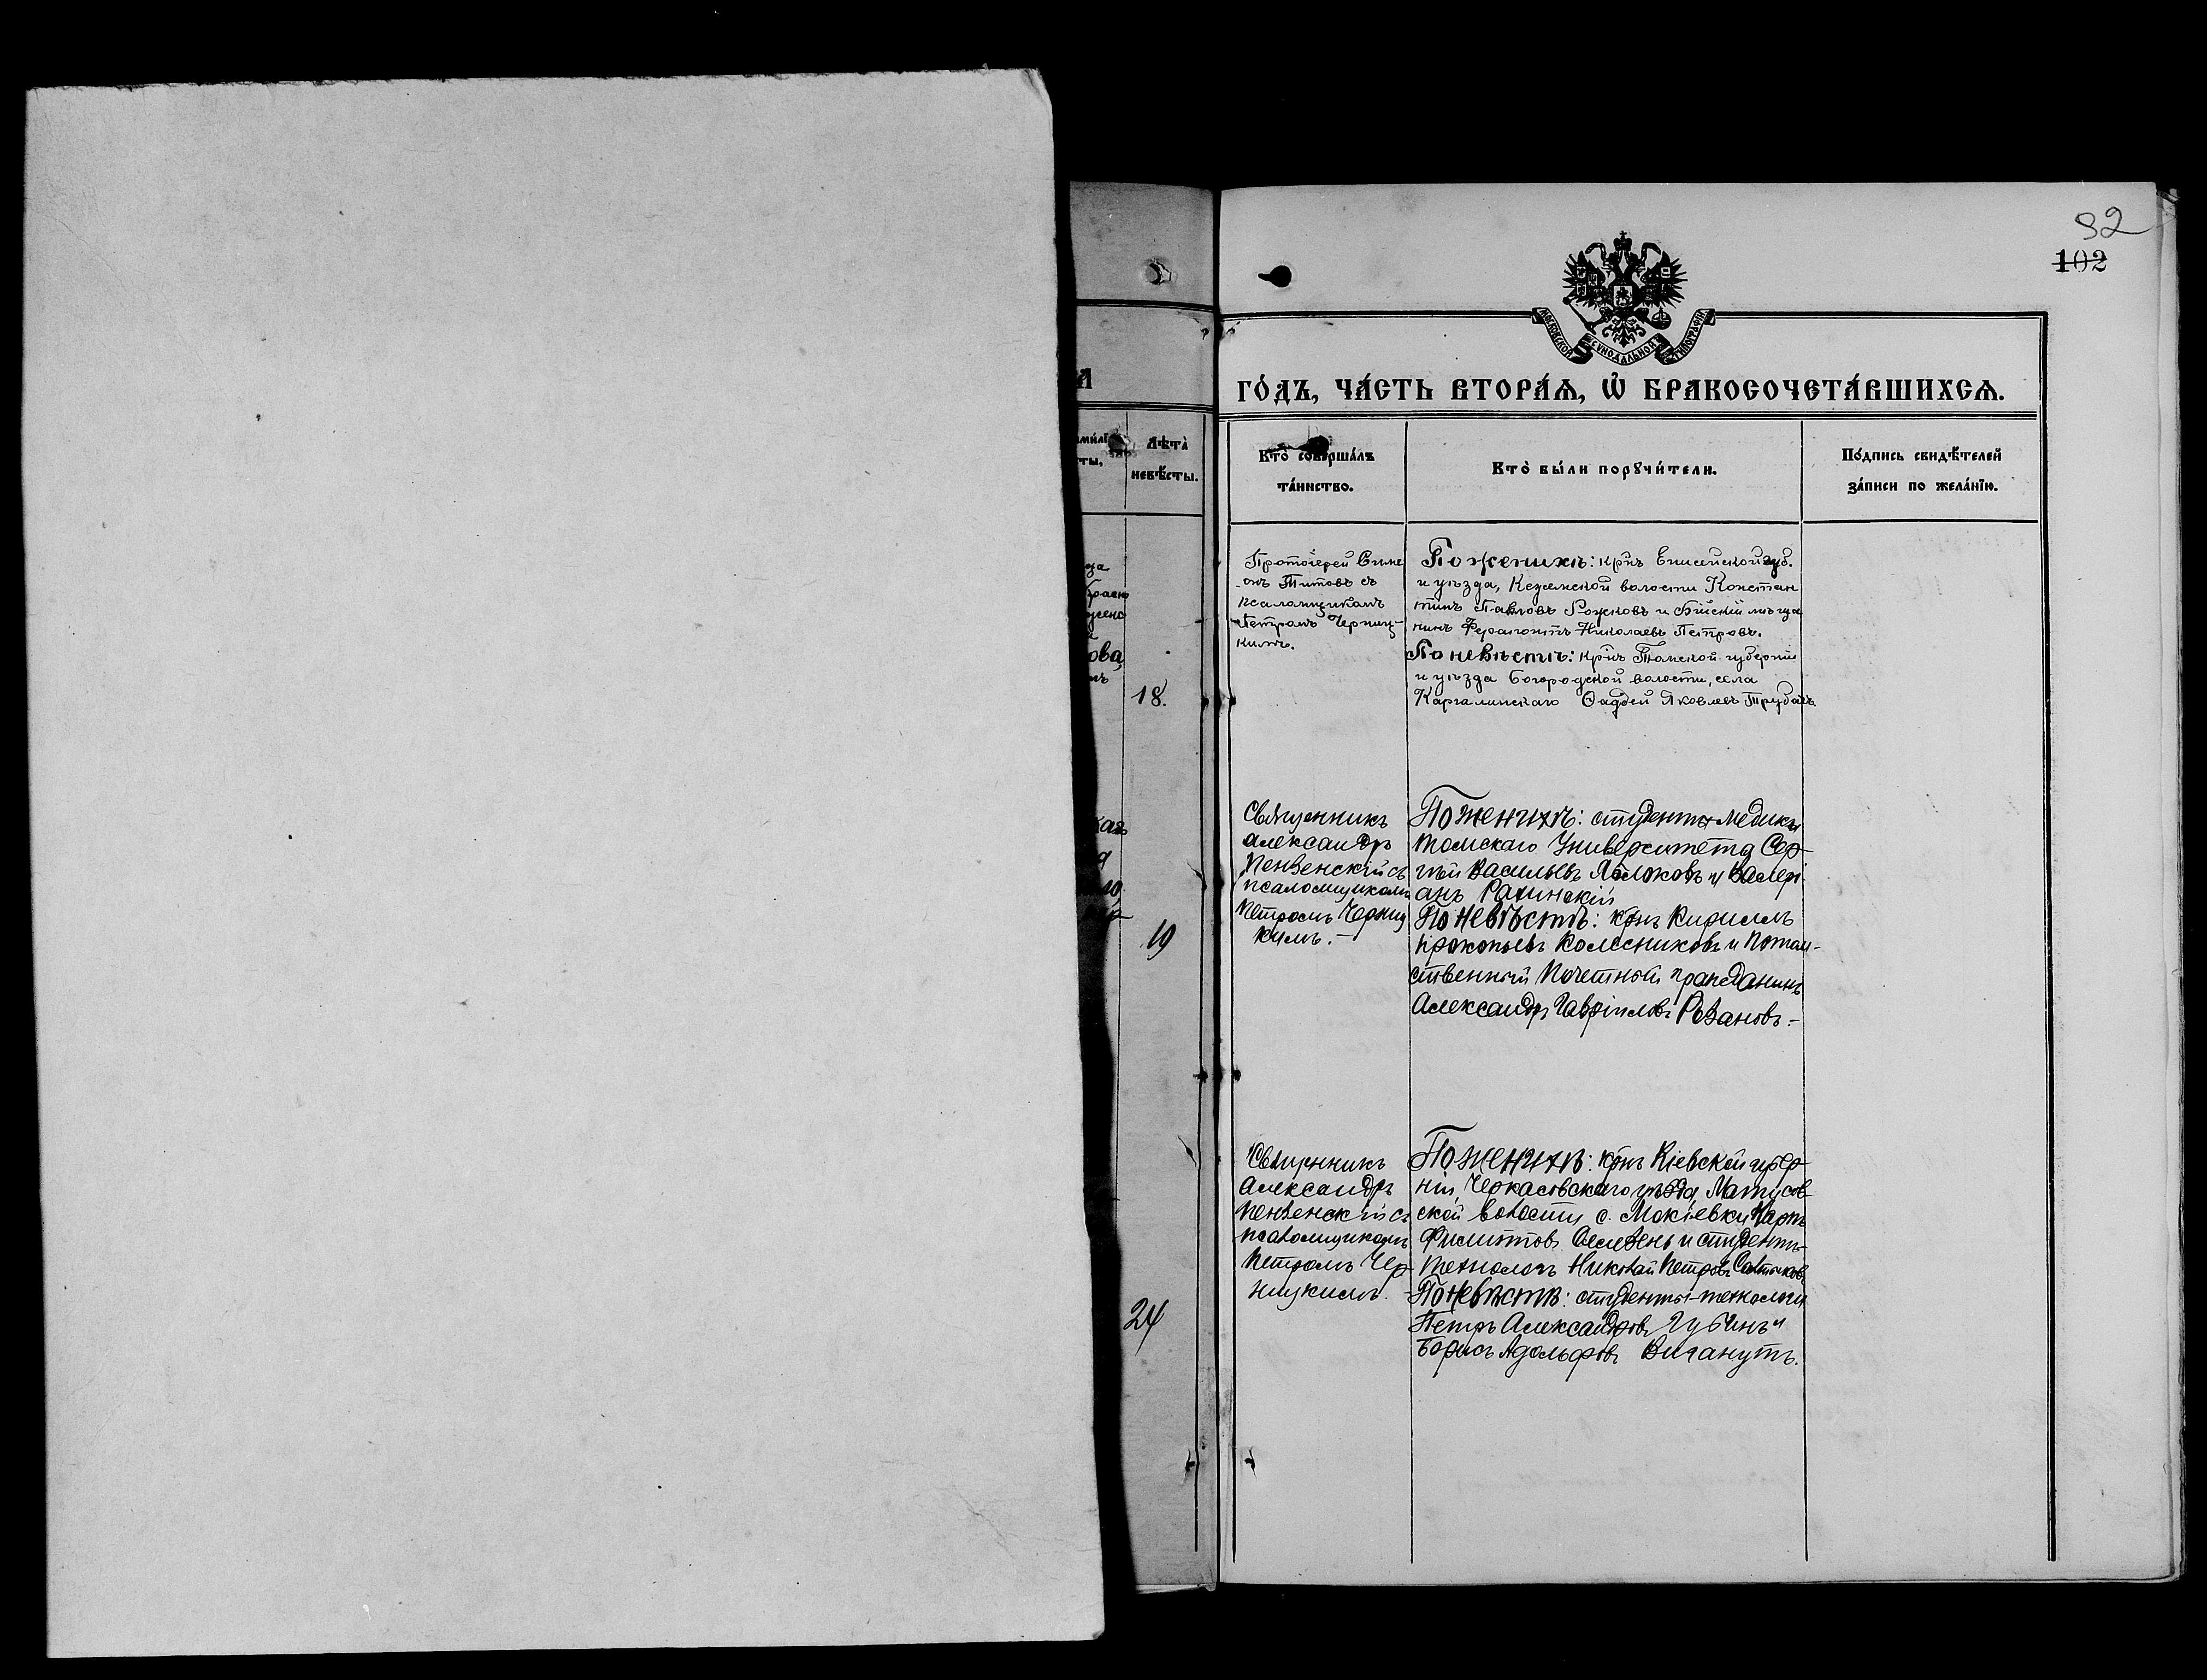 32
102
МОСКОВСКОЙ СѴНОДАЛЬНОЙ ТИПОГРАФІИ
ГО́ДЪ, ЧА́СТЬ ВТОРА́Ѧ, Ѽ БРАКОСОЧЕТА́ВШИХСѦ.
Лѣта̀
невѣ́сты.
Кто̀ соверша́лъ
та́инство.
Кто̀ бы́ли порꙋчи́тели.
По́дпись свидѣ́телей
за́писи по жела́нїю.
ова,
18.
Протоіерей Симе
онъ Титовъ съ
псаломщикомъ
Петромъ Черниц-
кимъ.
По женихѣ: крнъ Енисейской губ.
и уѣзда, Кежемской волости Констан
тинъ Павловъ Рожковъ и Бійскій мѣща
нинъ Ферапонтъ Николаевъ Петровъ.
По невѣстѣ: крнъ Томской губерніи
и уѣзда Богородской волости, села
Каргалинскаго Ѳаддей Яковлевъ
19
Священникъ
Александръ
Пензенскій съ
псаломщикомъ
Петромъ Черниц
кимъ.-
По женихѣ: студенты медики
Томскаго Университета Сер
гѣй Васильевъ и Валері
анъ
По невѣстѣ: крнъ Кириллъ
Прокопьевъ Колесниковъ и Потом-
ственный Почетный гражданинъ
Александръ Гавріиловъ Рѣзановъ.-
24
Священникъ
Александръ
Пензенскій съ
псаломщикомъ
Петромъ Чер
ницкимъ.
По женихѣ: крнъ Кіевской губер
ніи, Черкасовскаго уѣзда, Матусов
ской волости с. Мокіевки Карпъ
Филипповъ и студентъ
технологъ Николай Петровъ
По невѣстѣ: студенты-технологи
Петръ Александровъ Губинъ и
Борисъ Адольфовъ